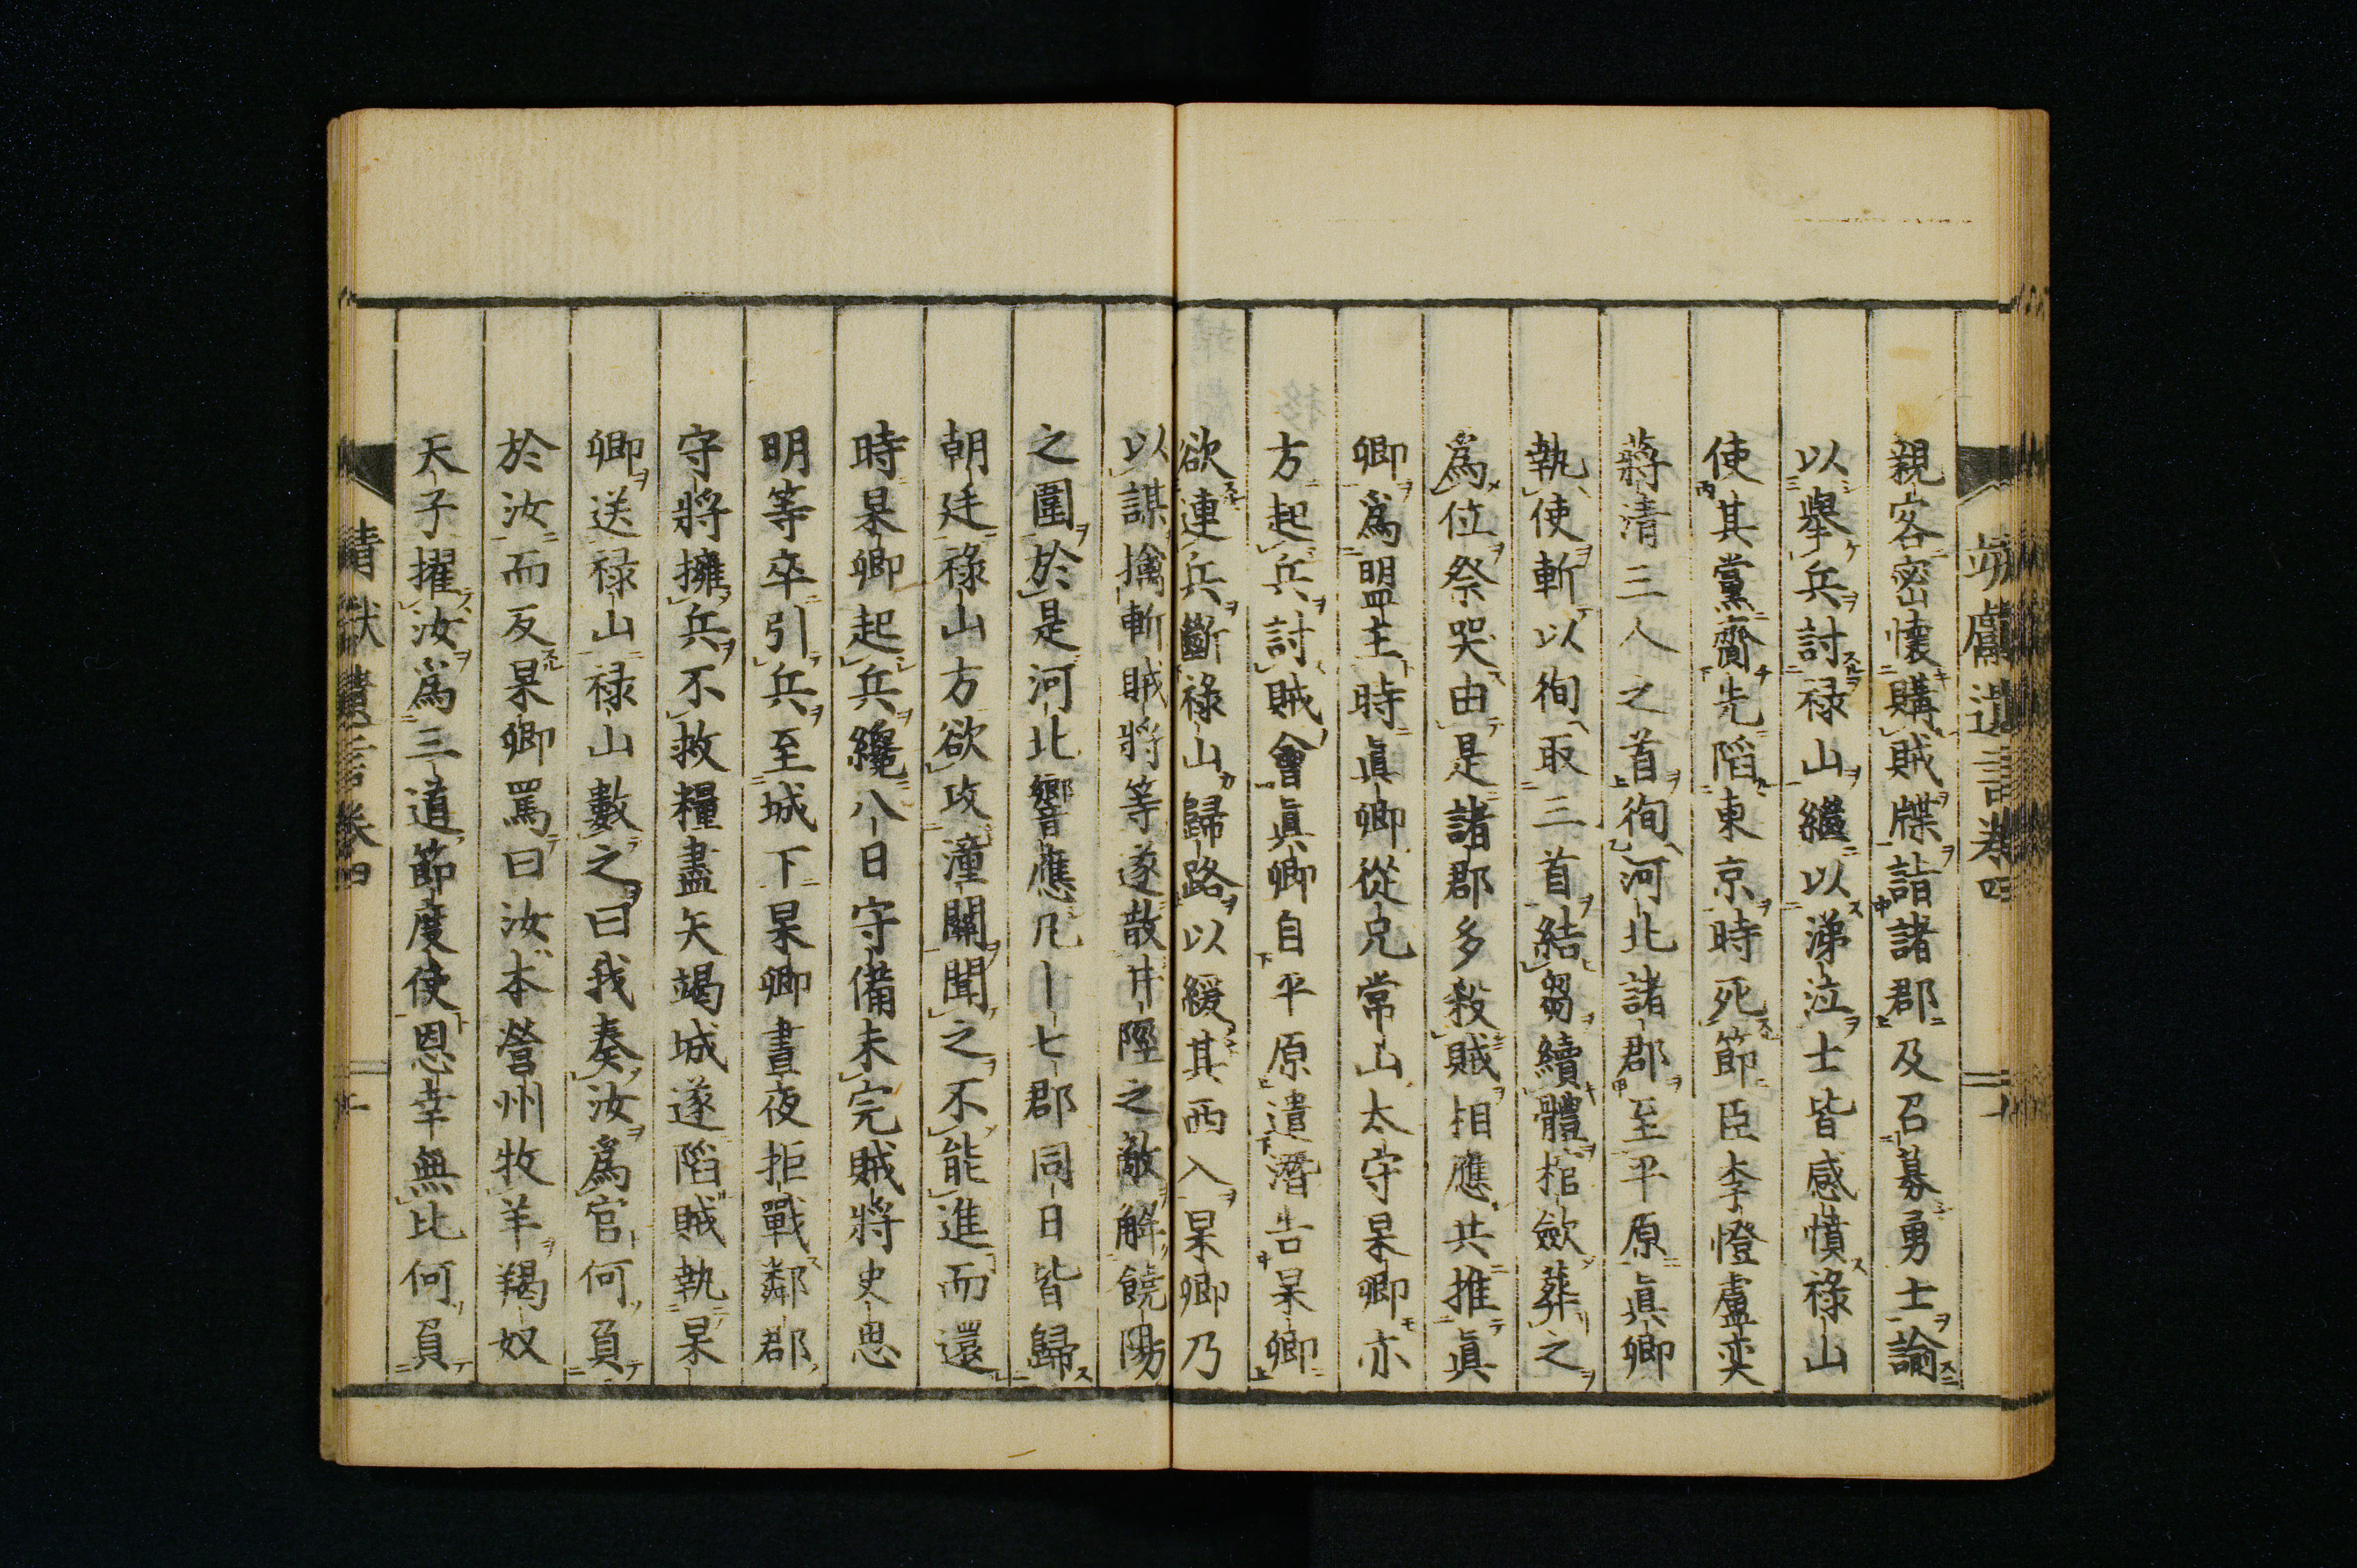 靖獻遺言卷四
親客密懷購賊牒詣諸郡及召募勇士諭
以舉兵討祿山繼以涕泣士皆感憤祿山
使其黨齎先陷東京時死節臣李憕盧奕
蔣清三人之首徇河北諸郡至平原眞卿
執使斬以徇取三首結芻續體棺斂葬之
爲位祭哭由是諸郡多殺賊相應共推眞
卿爲盟主時眞卿從兄常山太守杲卿亦
方起兵討賊會眞卿自平原遣潛告杲卿
欲連兵斷祿山歸路以緩其西入杲卿乃
以謀擒斬賊將等遂散井陘之敵解饒陽
之圍於是河北響應凡十七郡同日皆歸
朝廷祿山方欲攻潼關聞之不能進而還
時杲卿起兵纔八日守備未完賊將史思
明等卒引兵至城下杲卿晝夜拒戰鄰郡
守將擁兵不救糧盡矢竭城遂陷賊執杲
卿送祿山祿山數之曰我奏汝爲官何負
於汝而反杲卿罵曰汝本營州牧羊羯奴
天子擢汝爲三道節度使恩幸無比何負
靖獻遺言卷四